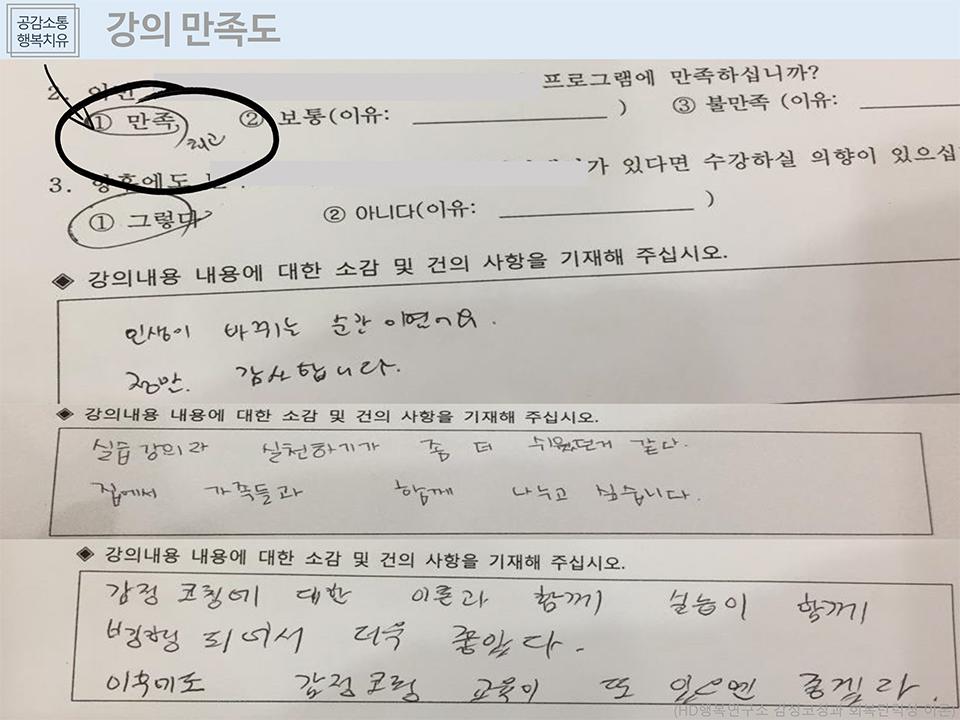 공감소통
행복치유
강의 만족도
프로그램에 만족하십니까?
① 만족, 최고 ② 보통(이유: ) ③ 불만족 (이유:
3. 향후에도 가 있다면 수강하실 의향이 있으십
① 그렇다 ② 아니다(이유: )
◈ 강의내용 내용에 대한 소감 및 건의 사항을 기재해 주십시오.
인생이 바뀌는 순간 이였어요.
정말. 감사합니다.
◈ 강의내용 내용에 대한 소감 및 건의 사항을 기재해 주십시오.
실습강의라 실천하기가 좀 더 쉬웠던거 같다.
집에서 가족들과 함께 나누고 싶습니다.
◈ 강의내용 내용에 대한 소감 및 건의 사항을 기재해 주십시오.
감정 코칭에 대한 이론과 함께 실습이 함께
병행 되어서 더욱 좋았다.
이후에도 감정코칭 교육이 또 있으면 좋겠다.
(HD행복연구소 감정코칭과 회복탄력성 이론)